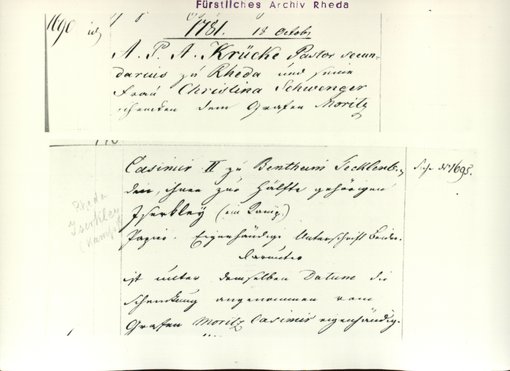 Fürstliches Archiv Rheda
1690
1781. 18 Octobr
A. P. A. Krücke Pastor secun-
darius zu Rheda und seine
Frau Christina Schwenger
schenken dem Grafen Moritz
Casimir II zu Bentheim Tecklenb.
den, ihnen zur Hälfte gehörigen
Papier. Eigenhändige Unterschrift beider.
Darunter
ist unter demselben Datum die
Schenkung angenommen vom
Grafen Moritz Casimir eigenhändig.
1695.
Rheda